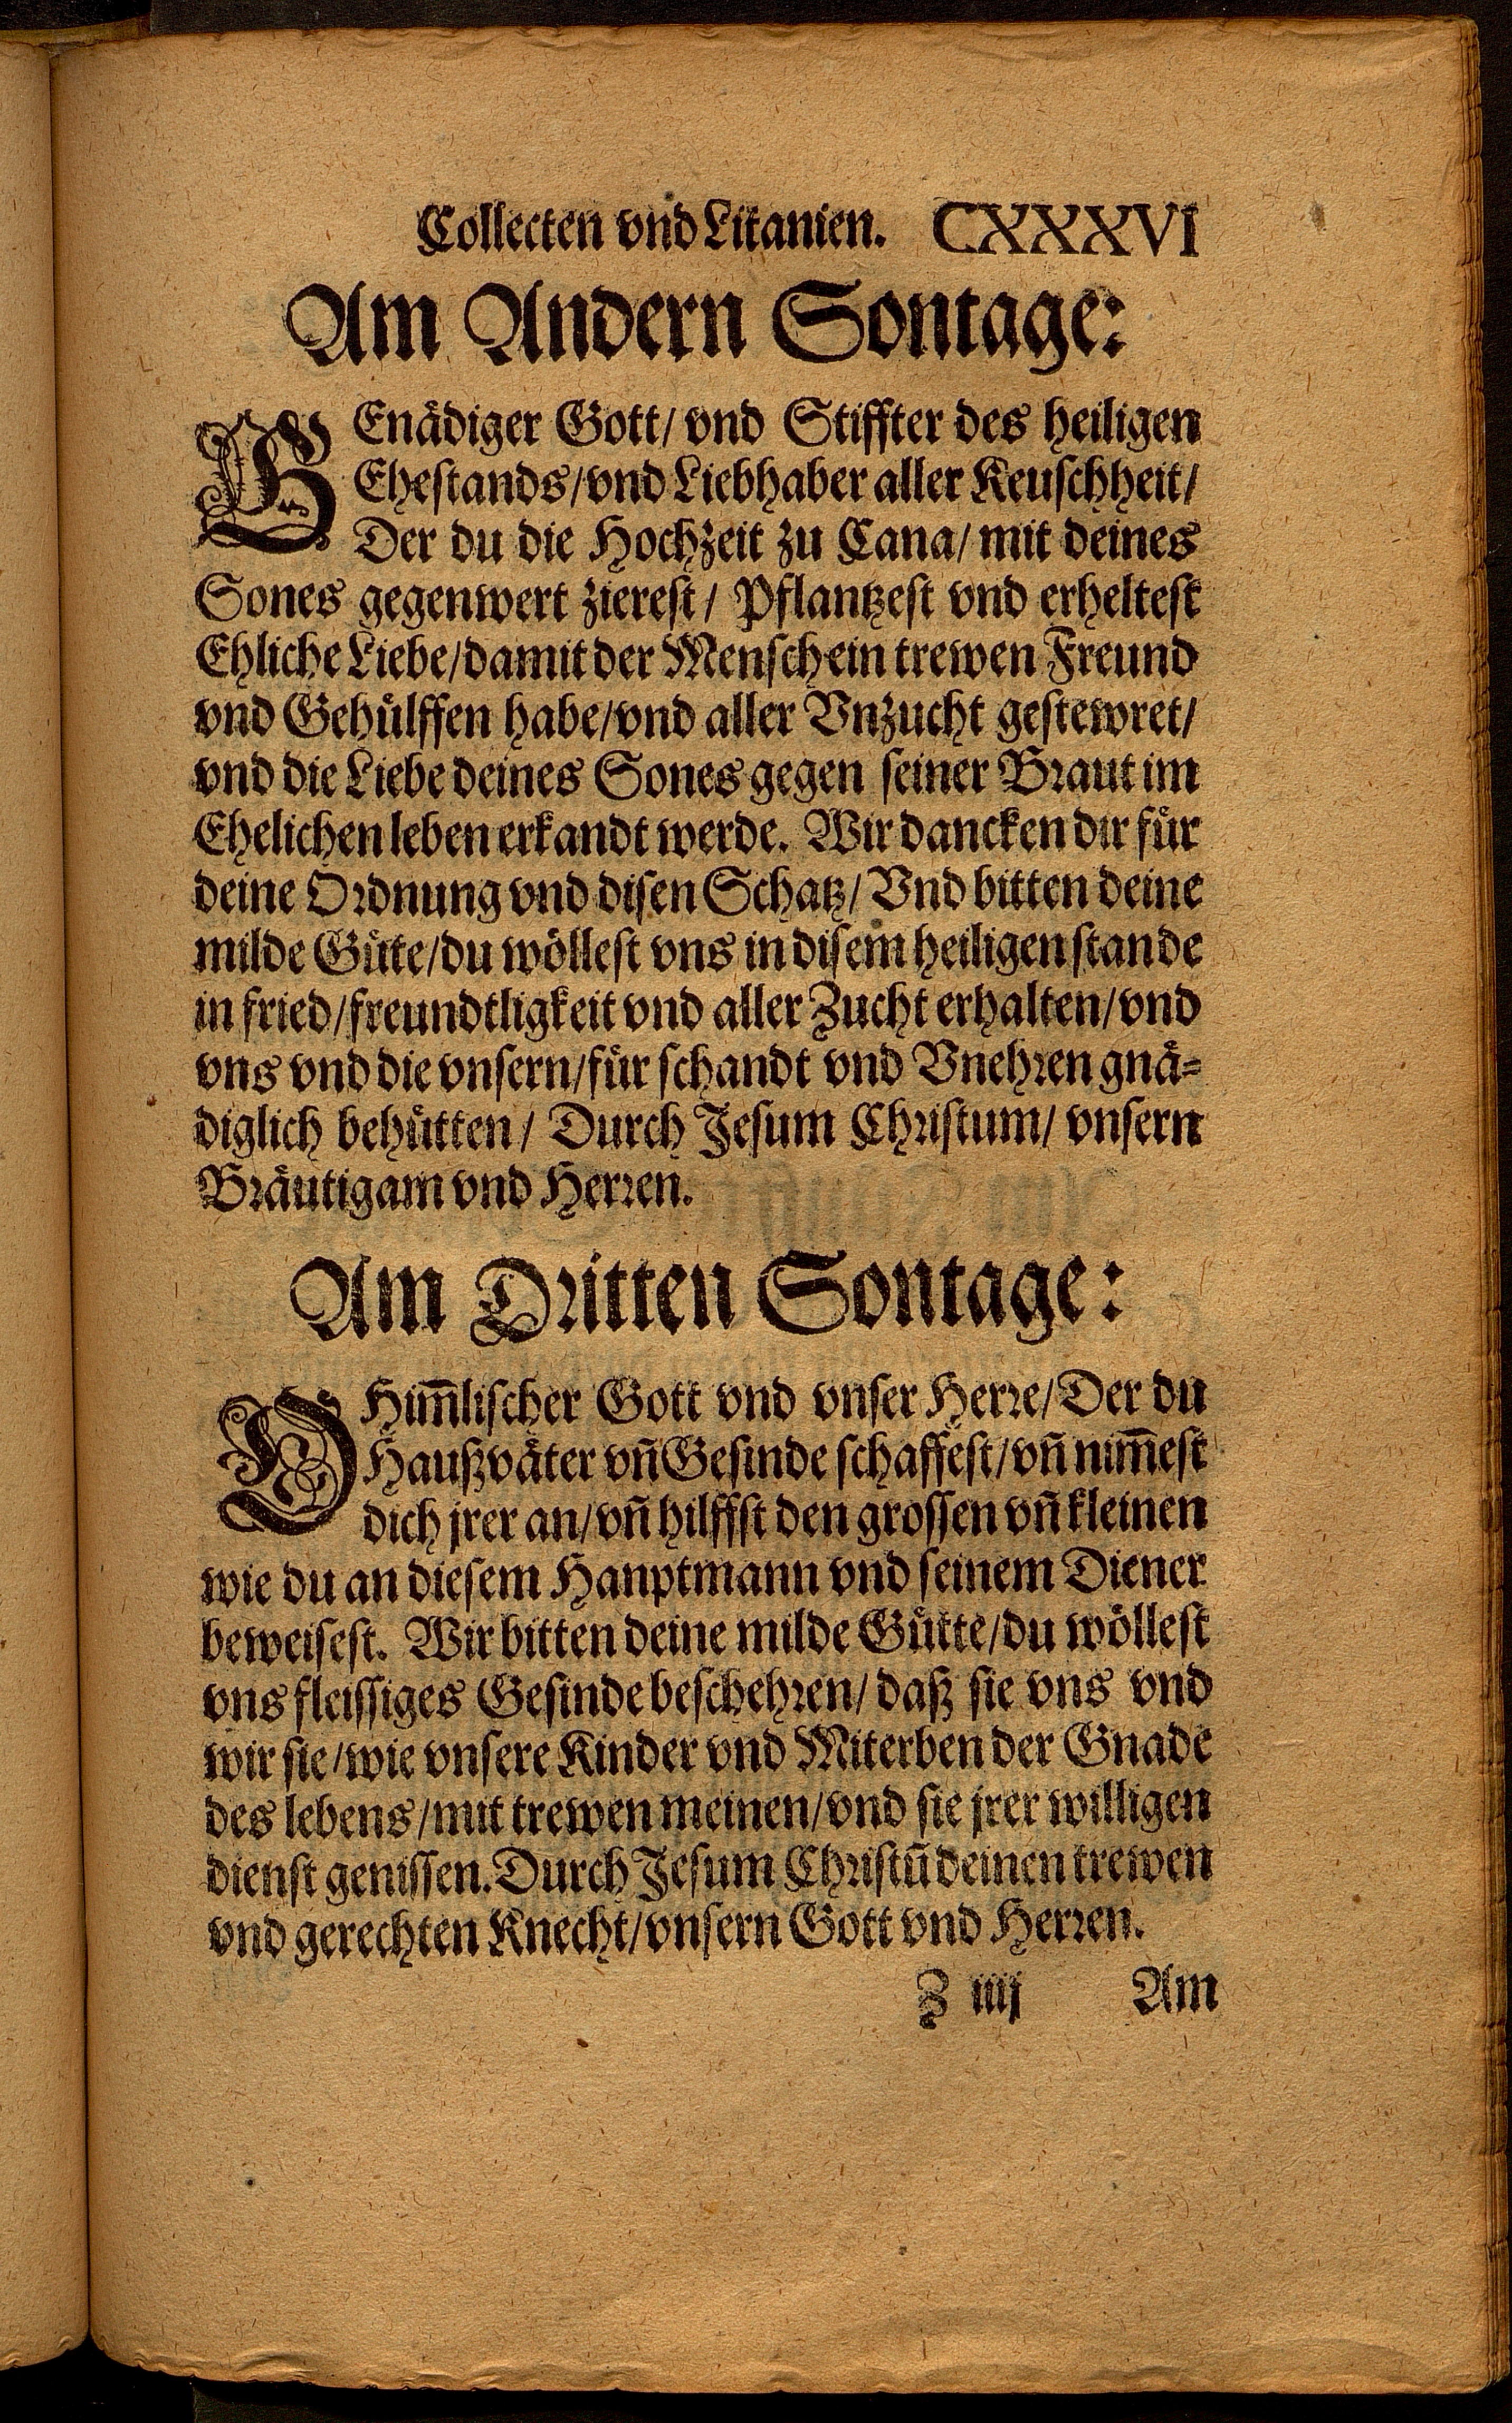 Collecten vnd Litanien. CXXXVI
Am Andern Sontage:
GEnädiger Gott/ vnd Stiffter des heiligen
Ehestands/ vnd Liebhaber aller Keuschheit/
Der du die Hochzeit zu Cana/ mit deines
Sones gegenwert zierest/ Pflantzest vnd erheltest
Ehliche Liebe/ damit der Mensch ein trewen Freund
vnd Gehülffen habe/ vnd aller Vnzucht gestewret/
vnd die Liebe deines Sones gegen seiner Braut im
Ehelichen leben erkandt werde. Wir dancken dir für
deine Ordnung vnd disen Schatz/ Vnd bitten deine
milde Güte/ du wöllest vns in disem heiligen stande
in fried/ freundtligkeit vnd aller Zucht erhalten/ vnd
vns vnd die vnsern/ für schandt vnd Vnehren gnä=
diglich behütten/ Durch Jesum Christum/ vnsern
Bräutigam vnd Herren.
Am Dritten Sontage:
O Him̄lischer Gott vnd vnser Herre/ Der du
Haußväter vn̄ Gesinde schaffest/ vn̄ nim̄est
dich jrer an/ vn̄ hilffst den grossen vn̄ kleinen
wie du an diesem Hanptmann vnd seinem Diener
beweisest. Wir bitten deine milde Gütte/ du wöllest
vns fleissiges Gesinde beschehren/ daß sie vns vnd
wir sie/ wie vnsere Kinder vnd Miterben der Gnade
des lebens/ mit trewen meinen/ vnd sie jrer willigen
dienst genissen. Durch Jesum Christū deinen trewen
vnd gerechten Knecht/ vnsern Gott vnd Herren.
Z iiij Am